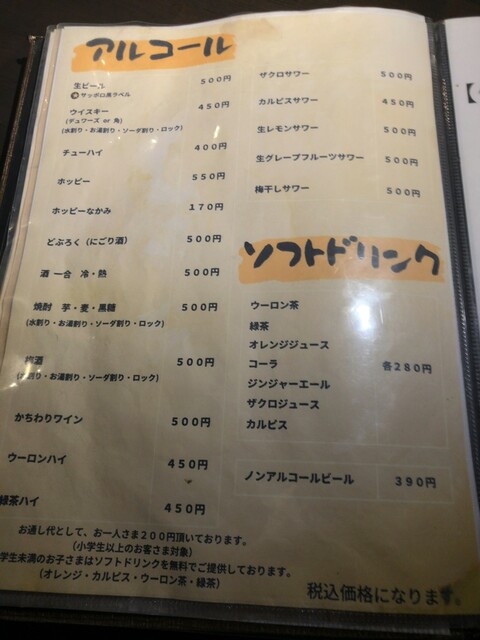 アルコール
生ビール 500円
サッポロ黒ラベル
ウイスキー 450円
(デュワーズ or 角)
(水割り・お湯割り・ソーダ割り・ロック)
チューハイ 400円
ホッピー 550円
ホッピーなかみ 170円
どぶろく (にごり酒) 500円
酒 一合 冷・熱 500円
焼酎 芋・麦・黒糖 500円
(水割り・お湯割り・ソーダ割り・ロック)
梅酒 500円
(水割り・お湯割り・ソーダ割り・ロック)
かちわりワイン 500円
ウーロンハイ 450円
緑茶ハイ 450円
ザクロサワー 500円
カルピスサワー 450円
生レモンサワー 500円
生グレープフルーツサワー 500円
梅干しサワー 500円
ソフトドリンク
ウーロン茶
緑茶
オレンジジュース
コーラ 各280円
ジンジャーエール
ザクロジュース
カルピス
ノンアルコールビール 390円
お通し代として、お一人さま200円頂いております。
(小学生以上のお客さま対象)
学生未満のお子さまはソフトドリンクを無料でご提供しております。
(オレンジ・カルピス・ウーロン茶・緑茶)
税込価格になります。
【